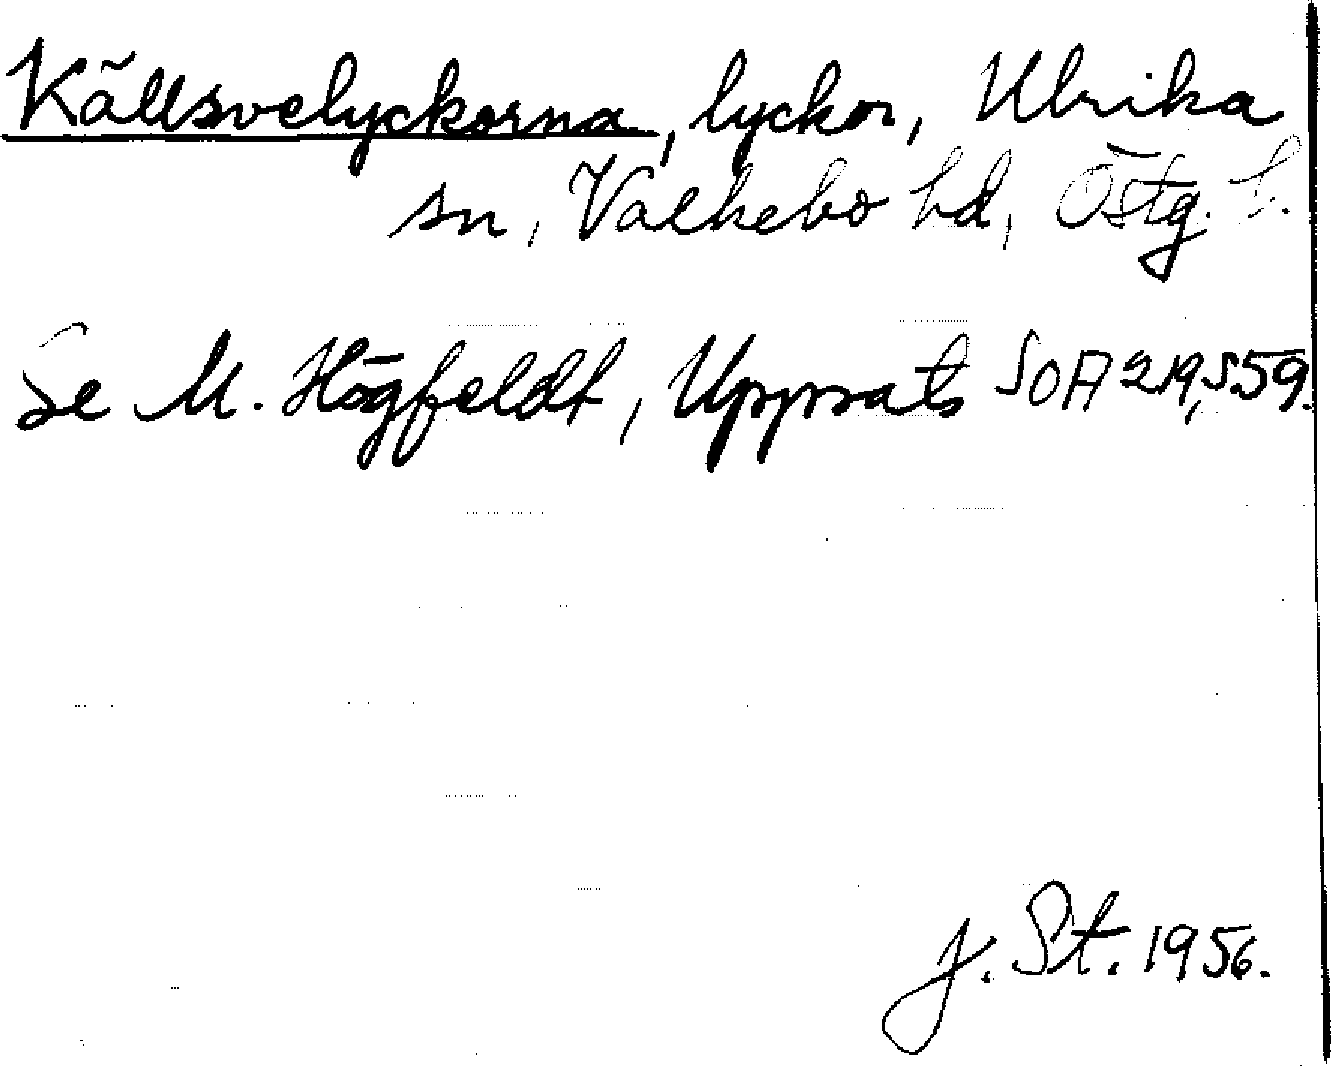 Källsvelyckorna, lyckor, Ulrika
sn, Valkebo hd, Östg. l.
Se M. Högfeldt, Uppsats SOA 219, s. 59.
J. St. 1956.